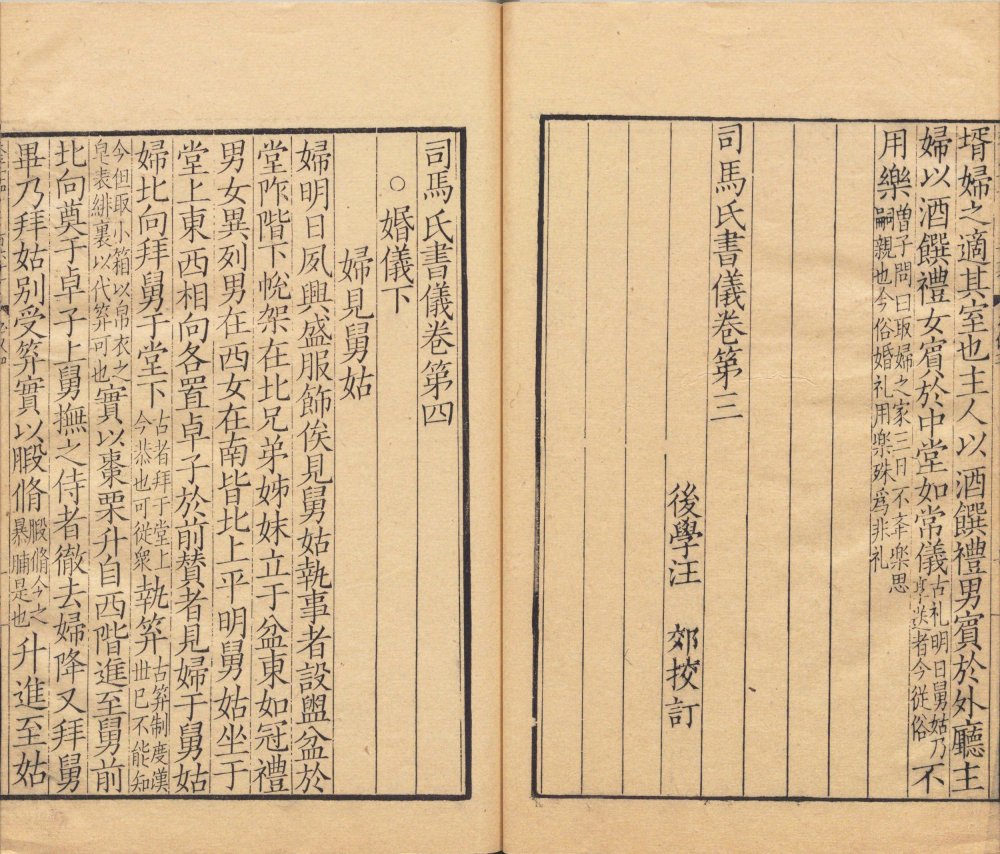 壻婦之適其室也主人以酒饌禮男賓於外廳主
婦以酒饌禮女賓於中堂如常儀古礼明日舅姑乃享送者今從俗不
用樂曽子問曰取婦之家三日不舉楽思嗣親也今俗婚礼用楽殊爲非礼
司馬氏書儀卷第三
後學汪 郊挍訂
司馬氏書儀卷第四
○婚儀下
婦見舅姑
婦明日夙興盛服飾俟見舅姑執事者設盥盆於
堂阼階下帨架在北兄弟姊妹立于盆東如冠禮
男女異列男在西女在南皆北上平明舅姑坐于
堂上東西相向各置卓子於前賛者見婦于舅姑
婦北向拜舅于堂下古者拜于堂上今恭也可從衆執笲古笲制度漢世已不能知
今但取小箱以帛衣之皁表緋裏以代笲可也實以棗栗升自西階進至舅前
北向奠于卓子上舅撫之侍者徹去婦降又拜舅
畢乃拜姑别受笲實以腶脩腶脩今之暴脯是也升進至姑